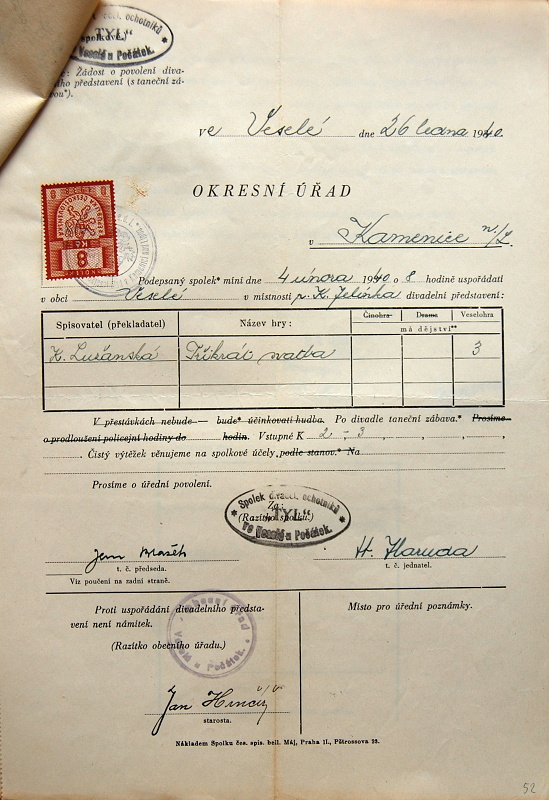 divad. ochotníků
spolkové.
"TYL"
Veselé u Počátek.
: Žádost o povolení diva-
ního představení (s taneční zá-
vou*).
ve Veselé dne 26 ledna 1940.
OKRESNÍ ÚŘAD
v Kamenice n/L
8
Podepsaný spolek* míní dne 4 února 1940 o 8 hodině uspořádati
v obci Veselé v místnosti p. K. Jelínka divadelní představení:
Spisovatel (překladatel) Název hry: Činohra Drama Veselohra
má dějství**
K. Lužánská Třikrát svatba 3
V přestávkách nebude — bude* účinkovati hudba. Po divadle taneční zábava.* Prosíme
o prodloužení policejní hodiny do hodin. Vstupné K 2 - 3
Čistý výtěžek věnujeme na spolkové účely, podle stanov.* Na
Prosíme o úřední povolení.
Spolek divad. ochotníků
Za:
"TYL"
(Razítko spolku.)
Ve Veselé u Počátek.
H. Hanuda
t. č. předseda. t. č. jednatel.
Viz poučení na zadní straně.
Proti uspořádání divadelního předsta-
vení není námitek.
Místo pro úřední poznámky.
Obecní úřad
(Razítko obecního úřadu.)
Veselá u Počátek.
Jan
starosta.
Nákladem Spolku čes. spis. bell. Máj, Praha II., Pštrossova 23.
52